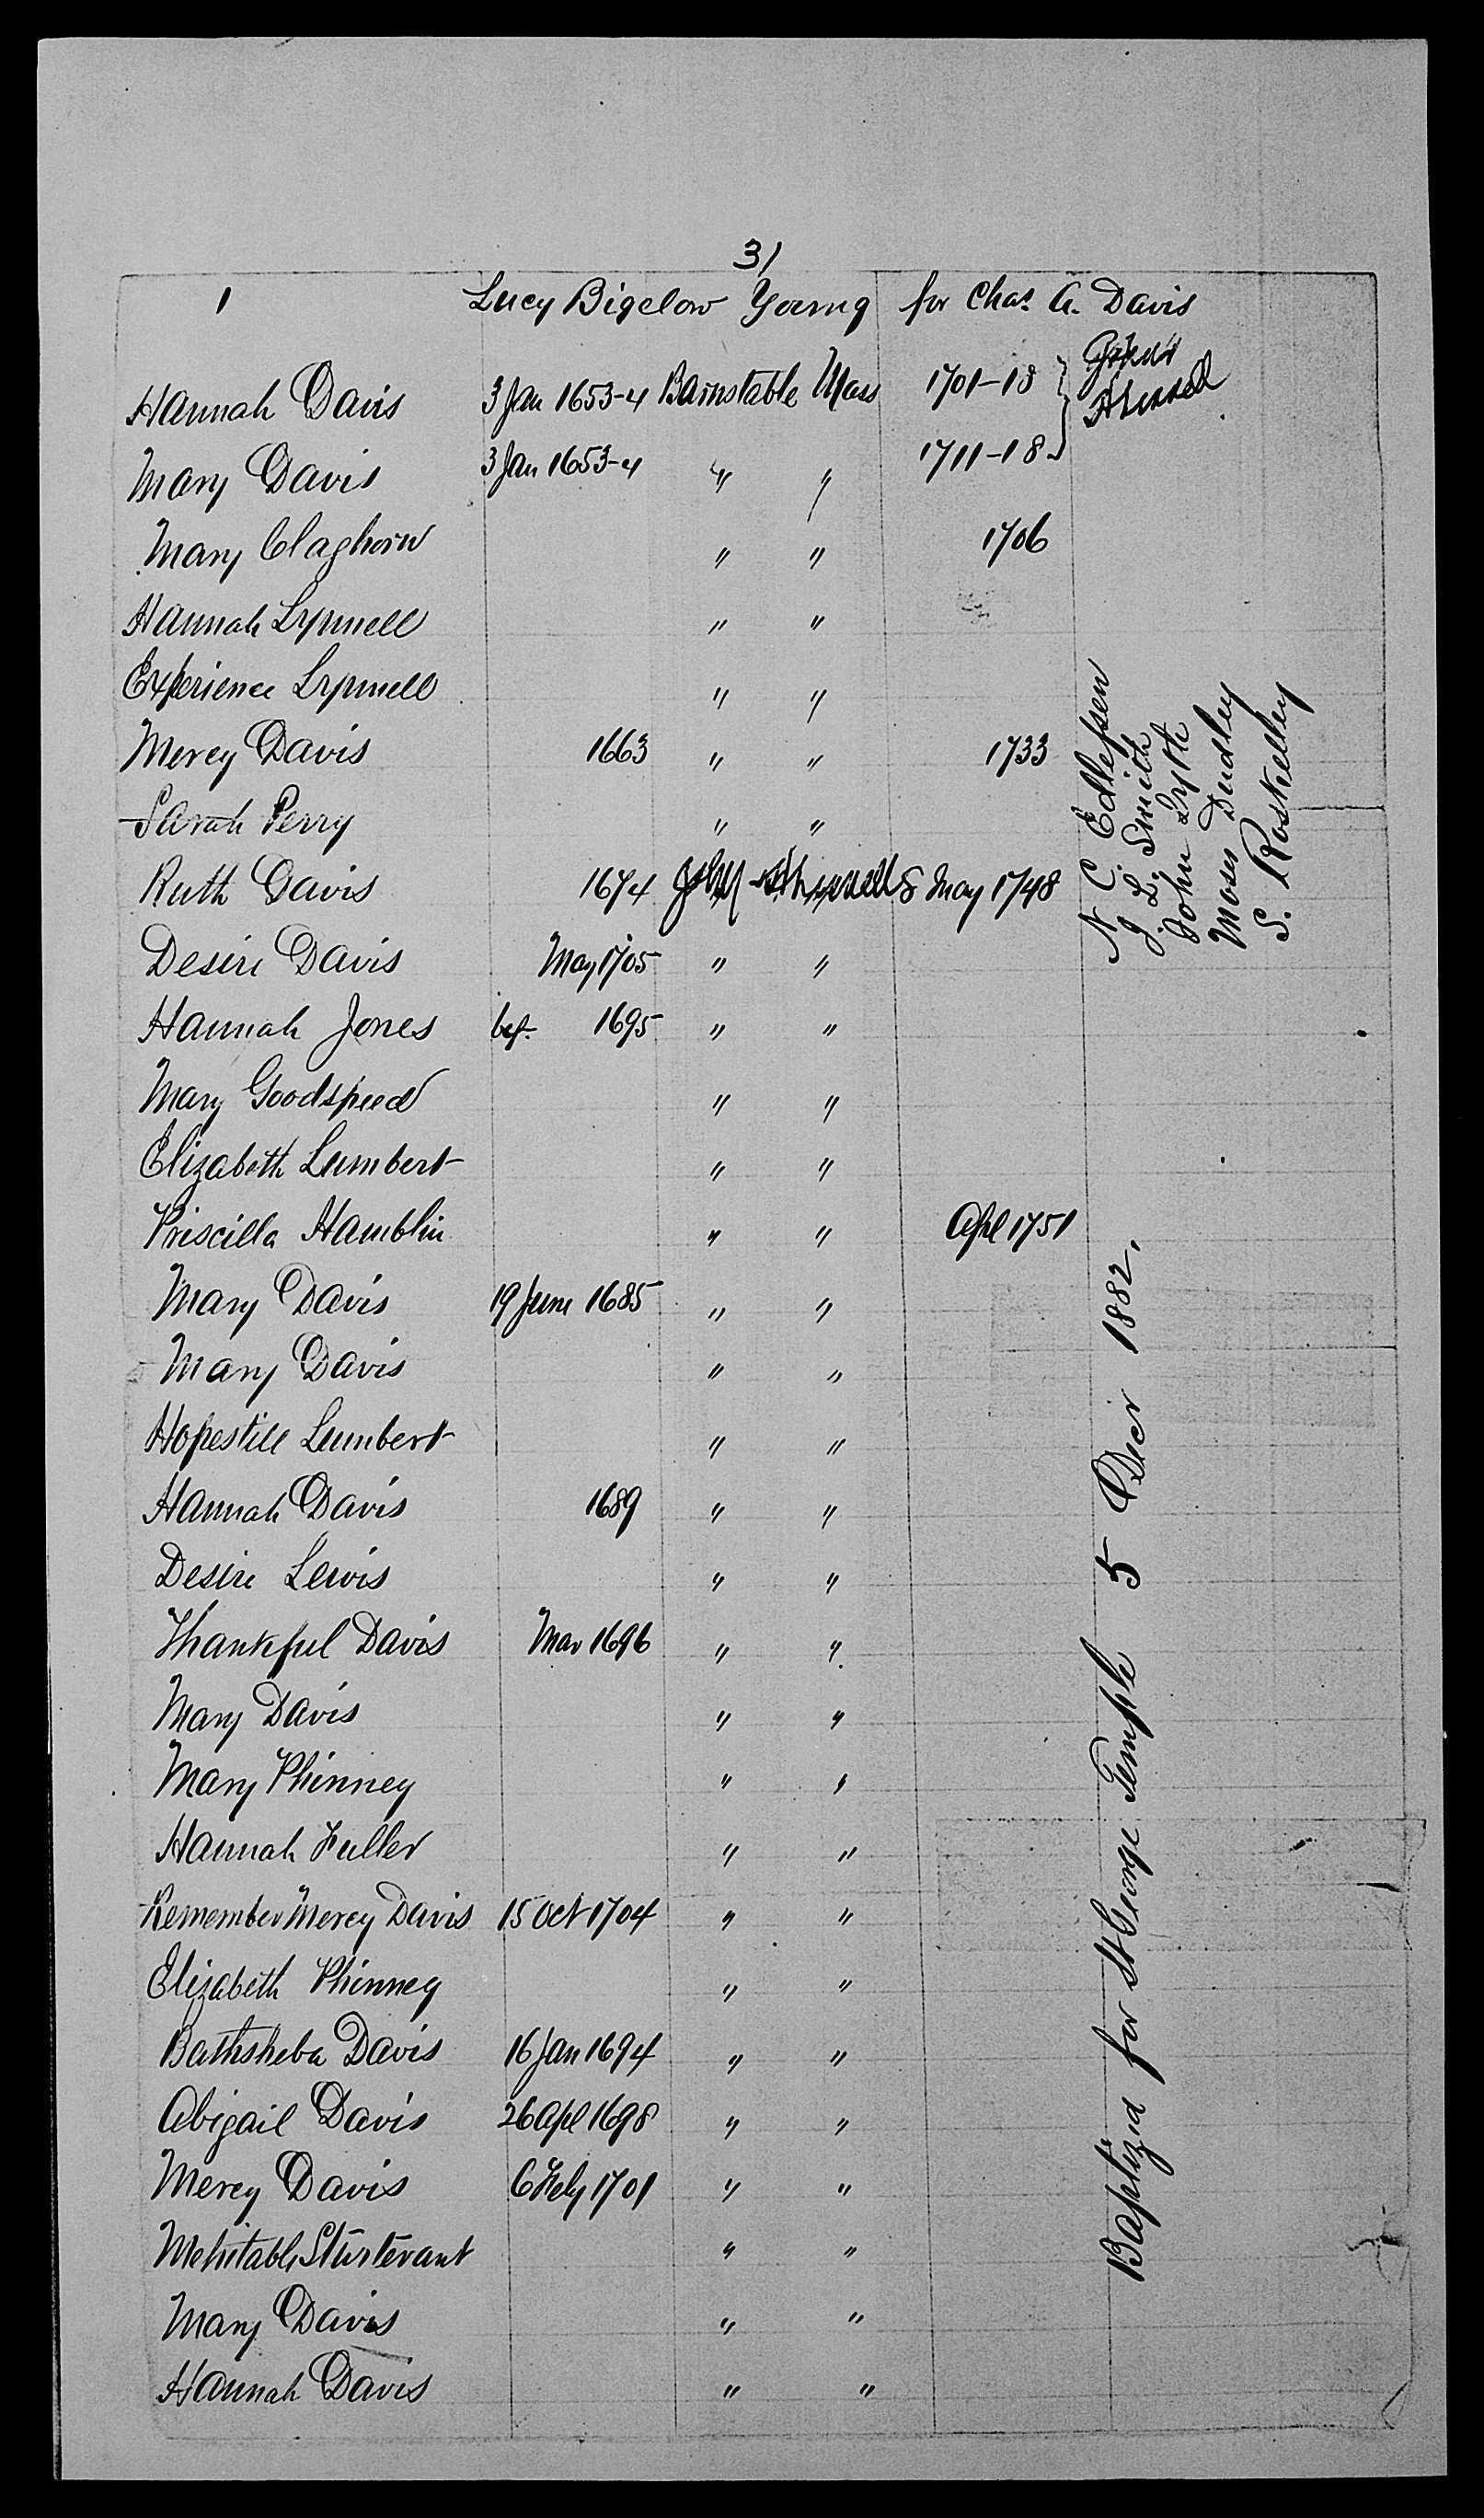 31
1 Lucy Bigelow Young for Chas. A. Davis
Hannah Davis 3 Jan 1653-4 Barnstable Mass 1701-18
Mary Davis 3 Jan 1653-4 " " 1711-18
Mary Claghorn " " 1706
Hannah Lynnell " "
Experience Lynnell " "
Mercy Davis 1663 " " 1733
Sarah Perry " "
Ruth Davis 1674 8 May 1748
Desire Davis May 1705 " "
Hannah Jones bef. 1695 " "
Mary Goodspeed " "
Elizabeth Lumbert " "
Priscilla Hamblin " " Apl 1751
Mary Davis 19 June 1685 " "
Mary Davis " "
Hopestill Lumbert " "
Hannah Davis 1689 " "
Desire Lewis " "
Thankful Davis Mar 1696 " "
Mary Davis " "
Mary Phinney " "
Hannah Fuller " "
Remember Mercy Davis 15 Oct 1704 " "
Elizabeth Phinney " "
Bathsheba Davis 16 Jan 1694 " "
Abigail Davis 26 Apl 1698 " "
Mercy Davis 6 Feby 1701 " "
Mehitabl Sturtevant " "
Mary Davis " "
Hannah Davis " "
N C. Edlefsen
J. L. Smith
John Lytle
Moses Dudley
S. Roskelley
Baptized for St George Temple 5 Decr 1882.